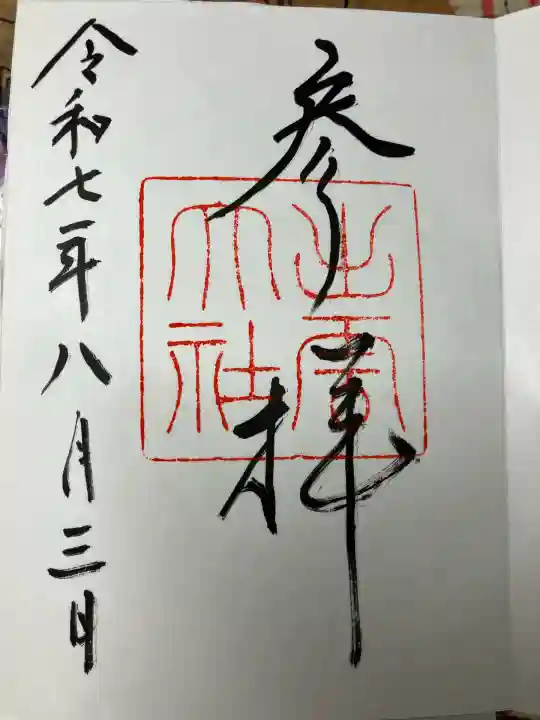 参拝
出雲
大社
令和七年八月三日